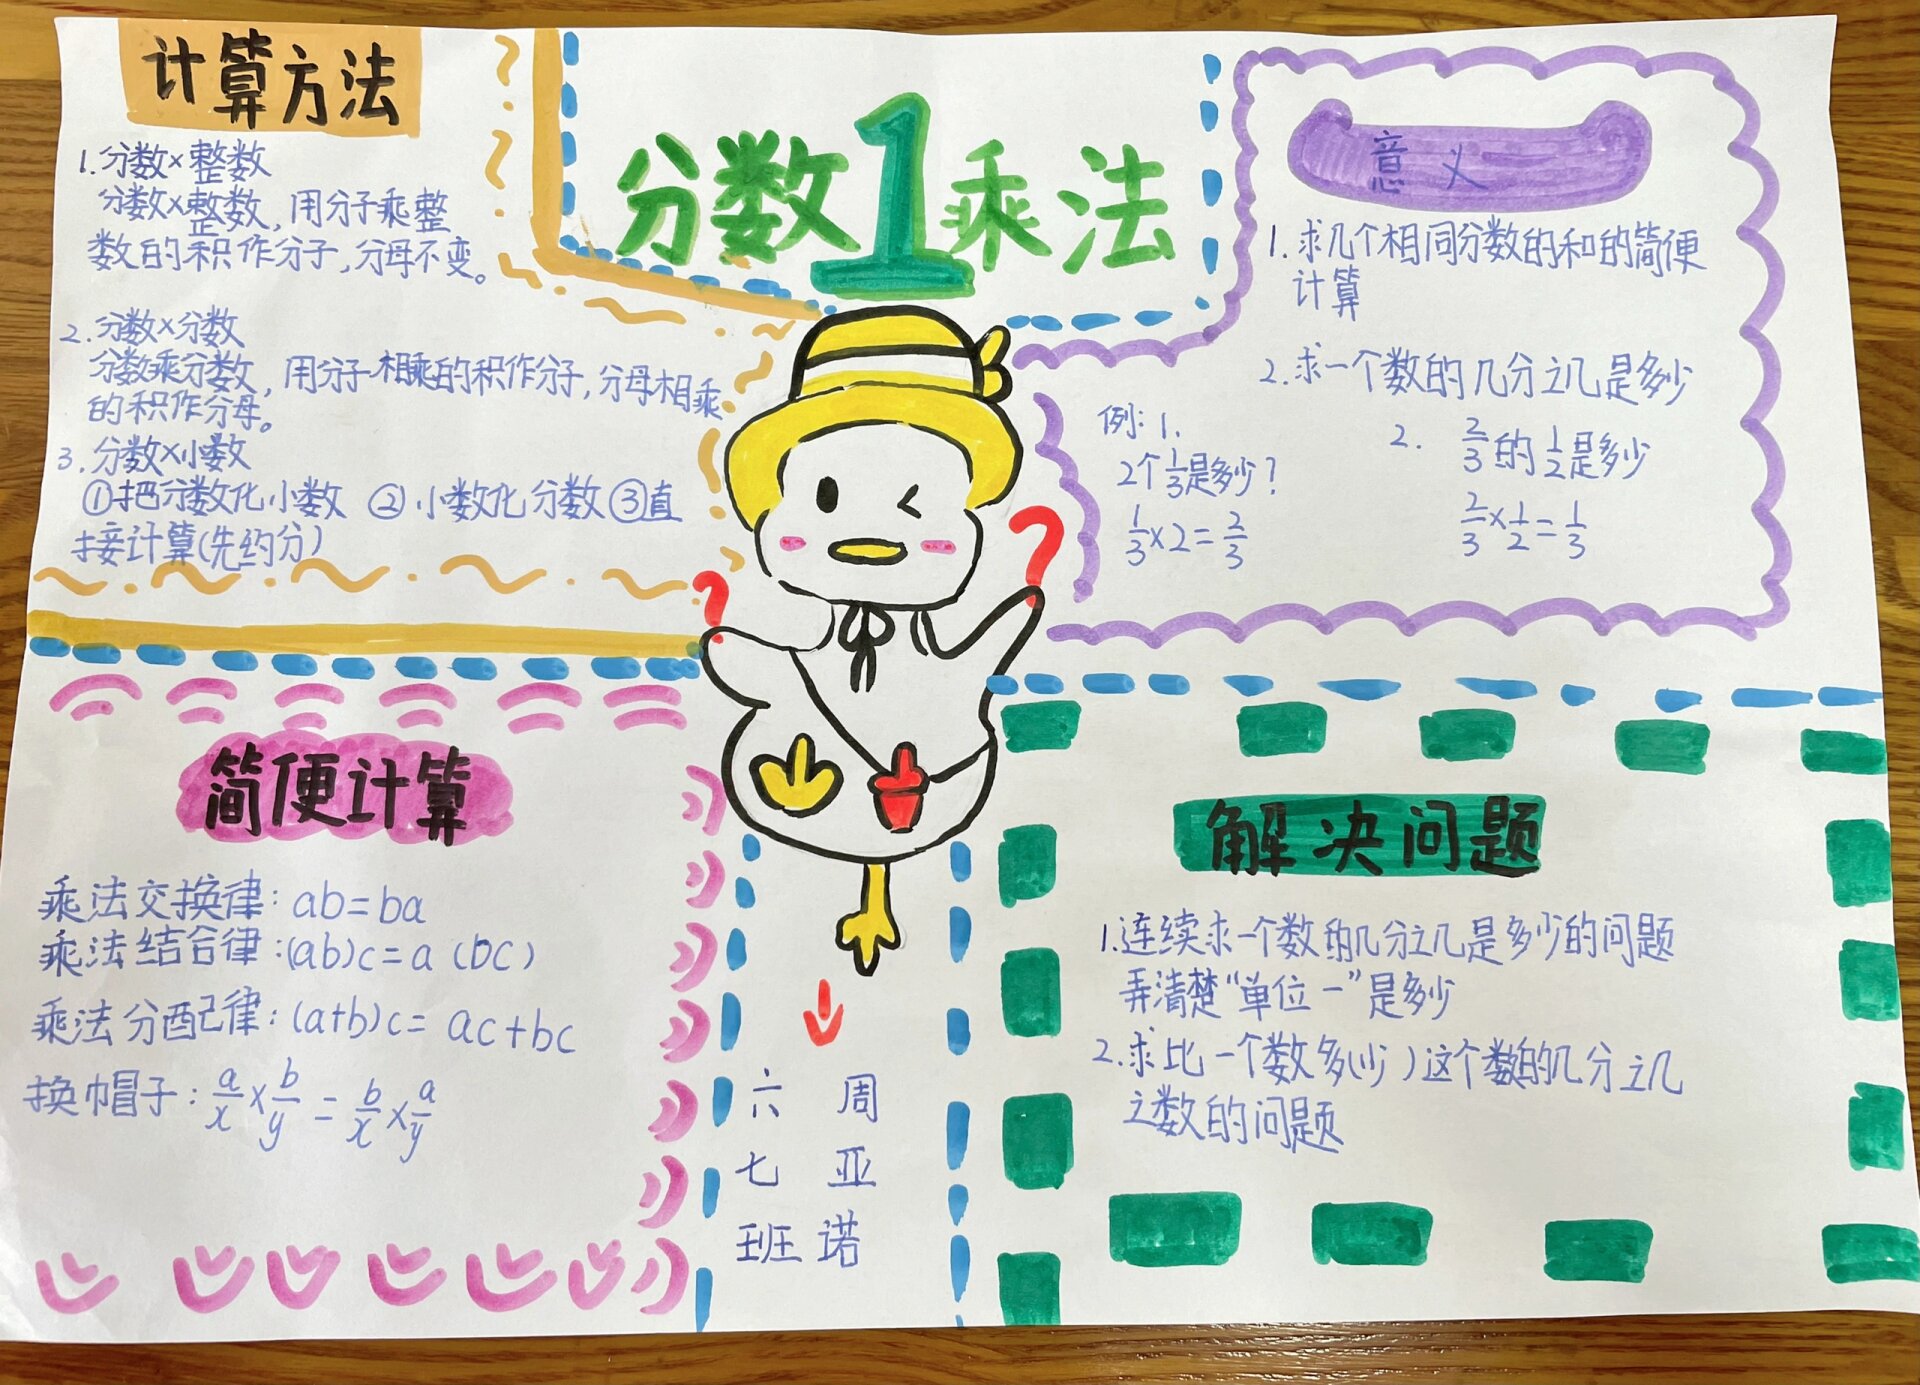 计算方法
1.分数×整数
分数×整数,用分子乘整
数的积作分子,分母不变。
2.分数×分数
分数乘分数,用分子相乘的积作分子,分母相乘
的积作分母。
3.分数×小数
①把分数化小数 ②小数化分数③直
接计算(先约分)
分数1乘法
意义
1.求几个相同分数的和的简便
计算
2.求一个数的几分之几是多少
例:1.
2个1/3是多少?
1/3×2=2/3
2. 2/3的1/2是多少
2/3×1/2=1/3
简便计算
乘法交换律:ab=ba
乘法结合律:(ab)c=a(bc)
乘法分配律:(a+b)c=ac+bc
换帽子:a/x×b/y=b/x×a/y
六七班
周亚诺
解决问题
1.连续求一个数的几分之几是多少的问题
弄清楚“单位一”是多少
2.求比一个数多(少)这个数的几分之几
之数的问题